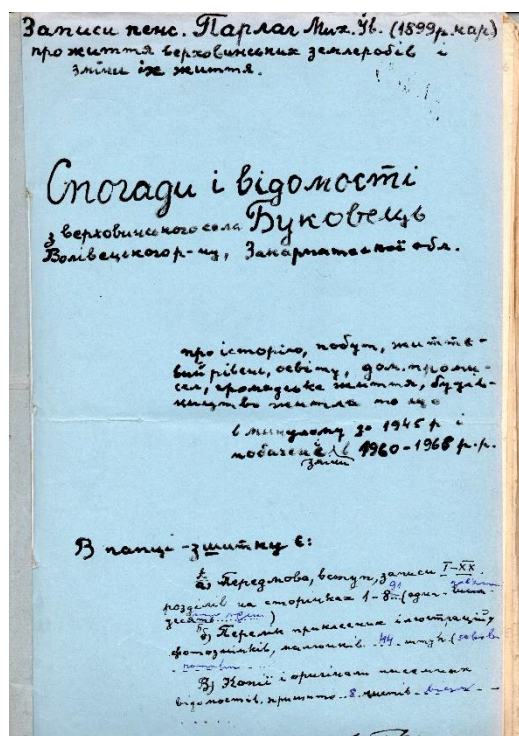 Записи пенс. Парлаг Мих. Ів. (1899 р. нар)
про життя верховинських землеробів і
зміни їх життя.
Спогади і відомості
з верховинського села Буковець
Волівецького р-ну, Закарпатської обл.
про історію, побут, життє-
вий рівень, освіту, дом. проми-
сел, громадське життя, будів-
ництво житла то що
в минулому до 1945 р і
побачені в 1960-1968 р.р.
зміни
В папці - зшитку є:
а) Передмова, вступ, записи I-XX
розділів на сторінках 1-8
десять
б) Перелік приклеєних ілюстрацій,
фотознімків, малюнків 44 штук (
В) Копії і оригінали писемних
відомостів, пришито 8 листів